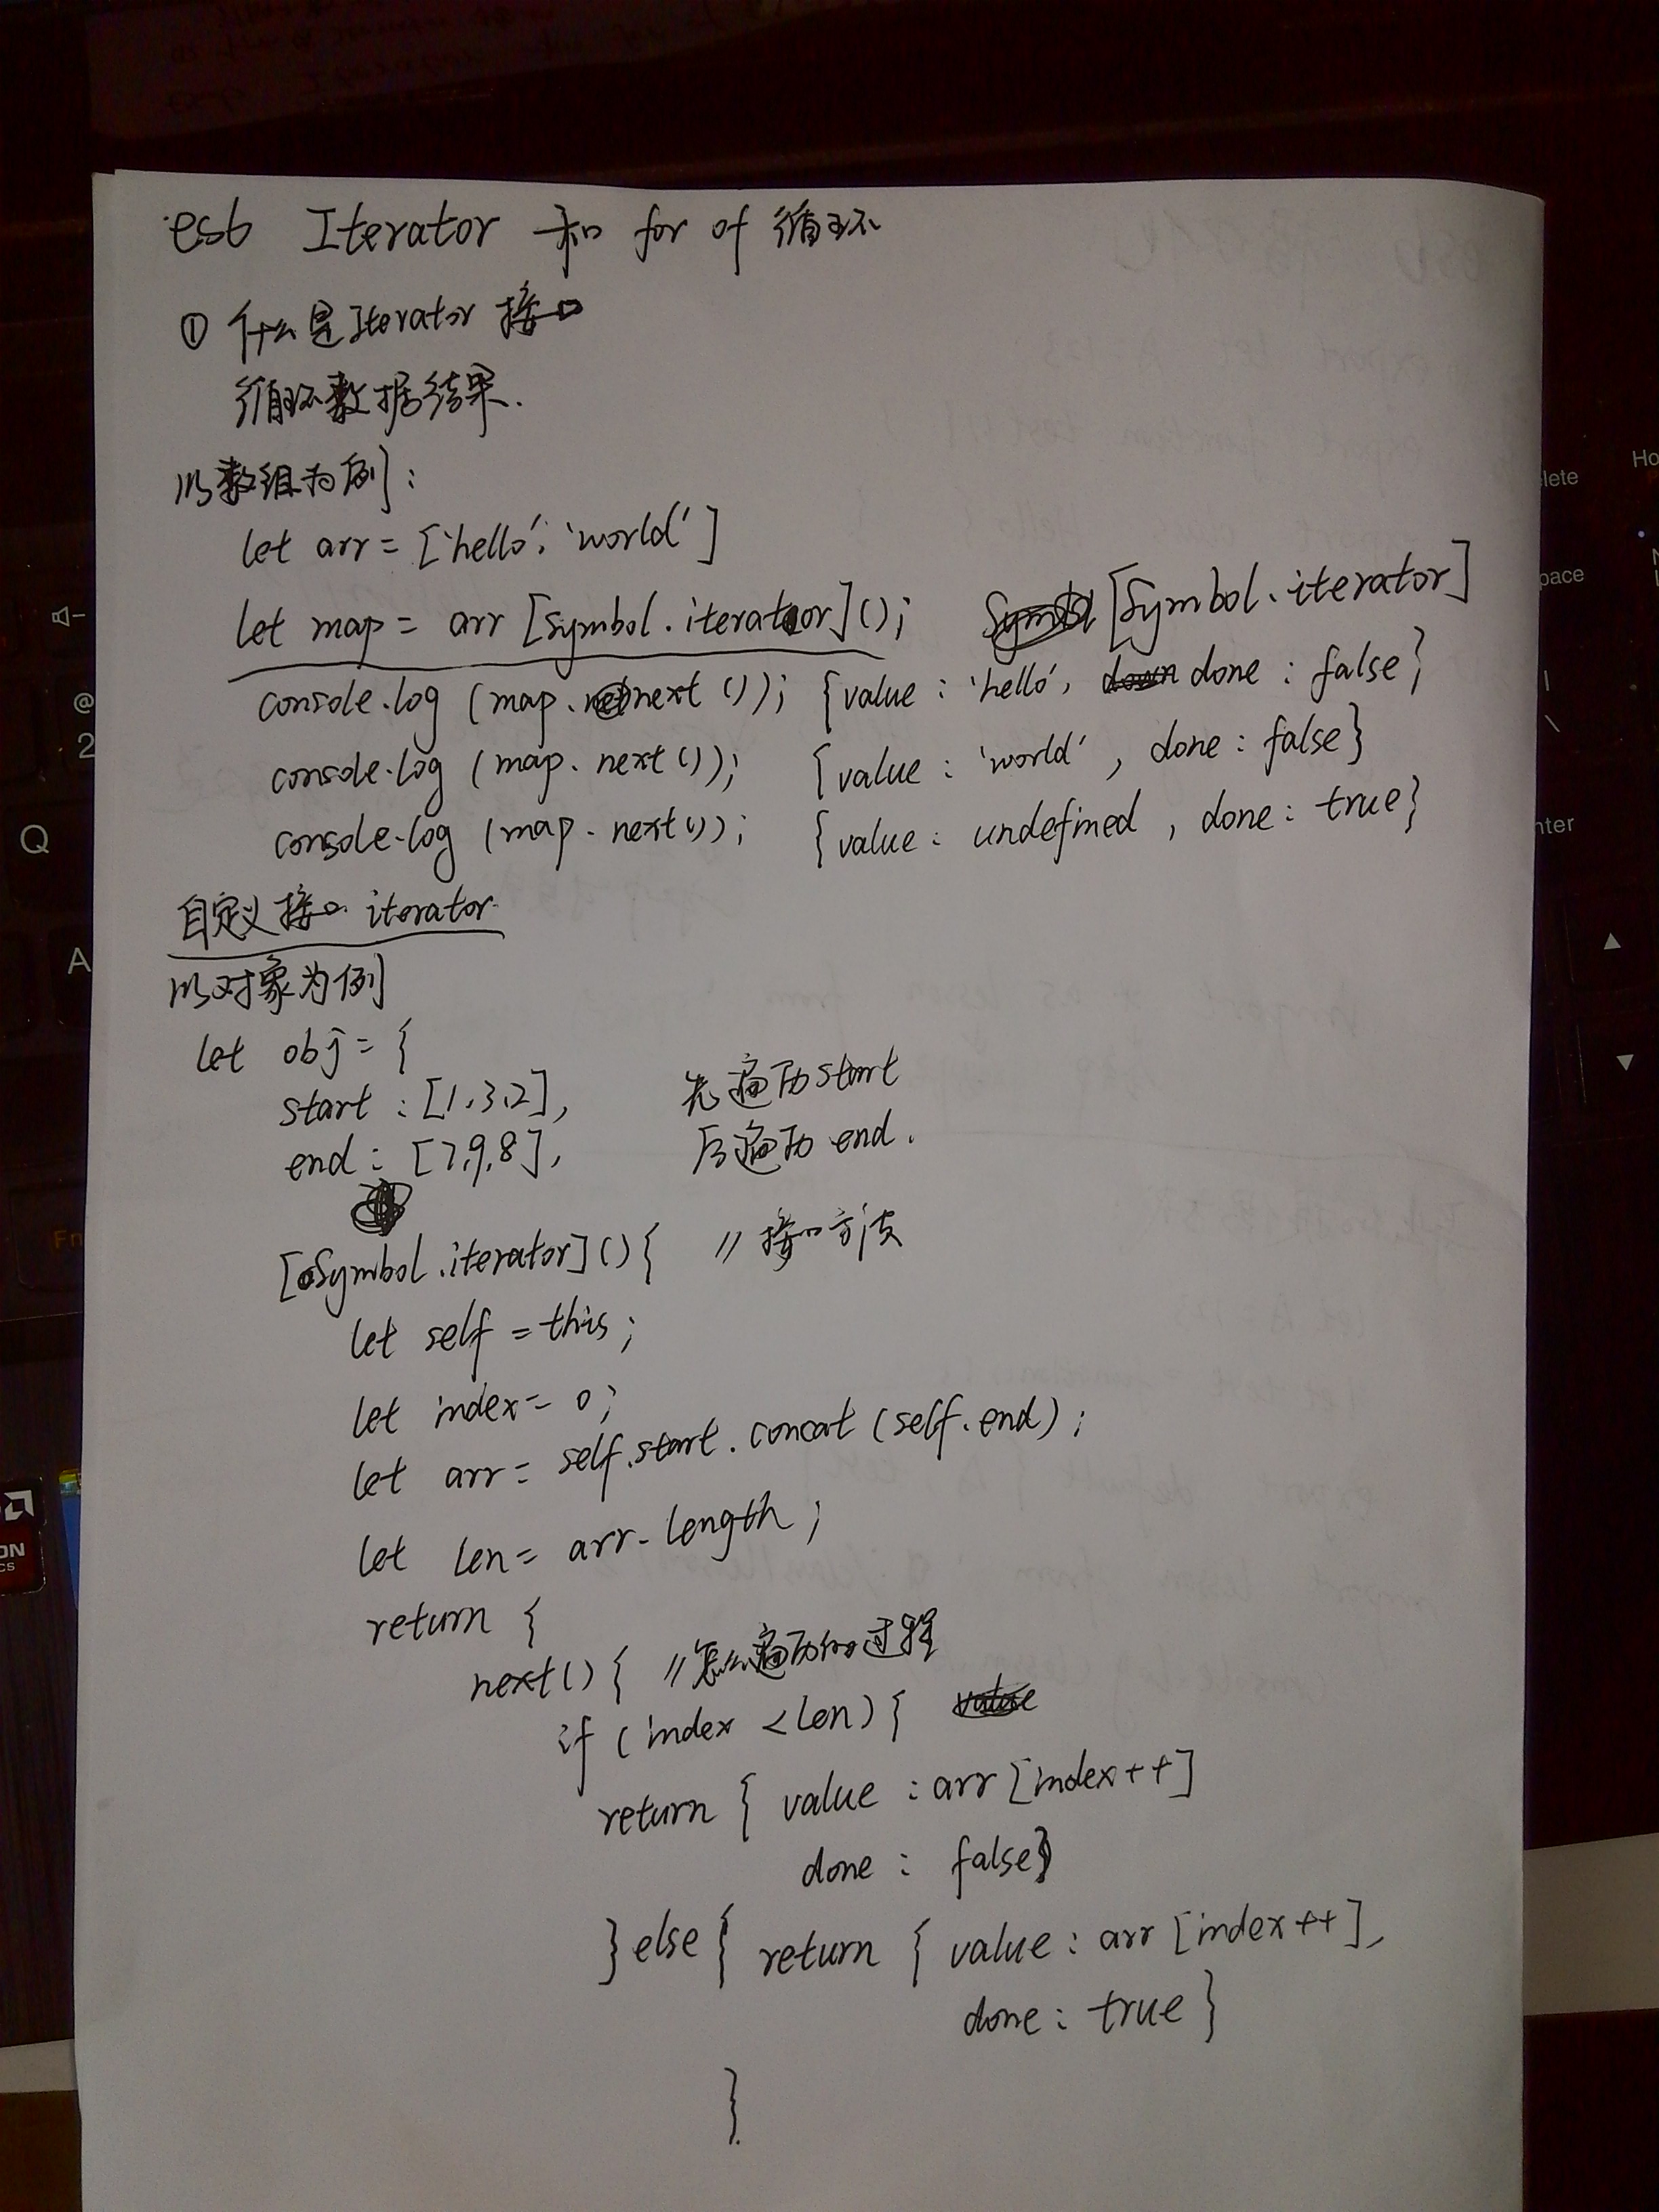 es6 Iterator 和 for of 循环
① 什么是Iterator 接口
循环数据结果.
以数组为例:
let arr = ['hello', 'world']
let map = arr [symbol.iterator](); [Symbol.iterator]
console.log (map.next ()); {value : 'hello', done : false}
console.log (map.next ()); {value : 'world', done : false}
console.log (map.next ()); {value : undefined, done : true}
自定义接口 iterator
以对象为例
let obj = {
start : [1,3,2], 先遍历start
end : [7,9,8], 后遍历 end.
[Symbol.iterator]() { // 接口方法
let self = this;
let index = 0;
let arr = self.start.concat (self.end);
let len = arr.length;
return {
next() { // 怎么遍历的过程
if (index < len) {
return { value : arr [index++]
done : false}
} else { return { value : arr [index++],
done : true }
}
Q
A
@
2
Fn
lete
Ho
pace
nter
ON
CS